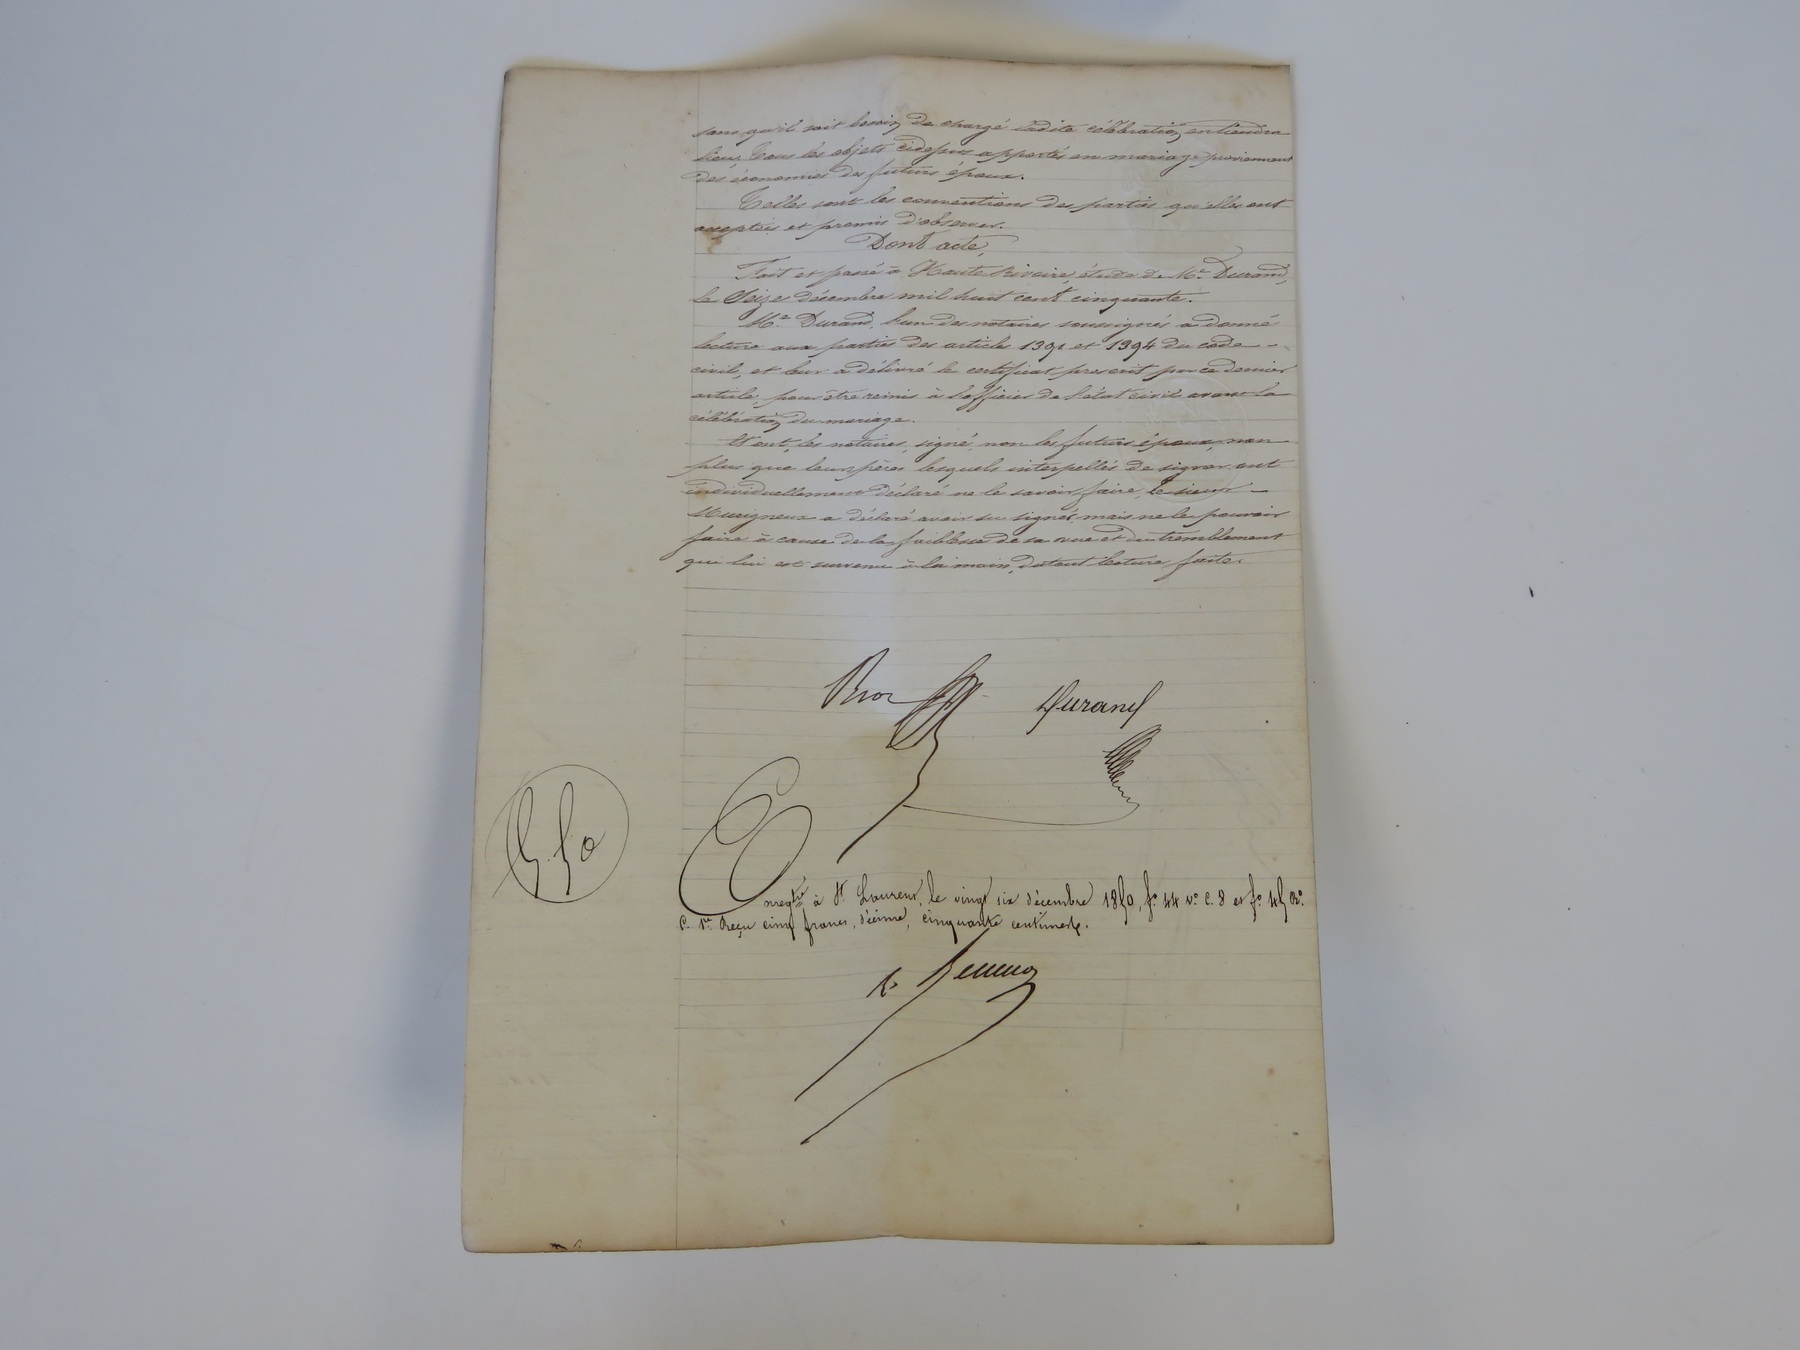 sans qu'il soit besoin de charge ladite célébration en tiendra
lieu, Tous les objets cidessus apportés en mariage proviennent
des économies des futurs époux.
Telles sont les conventions des parties qu'elles ont
acceptées et promis d'observer.
Dont acte,
Fait et passé à Haute Rivoire, étude de Me. Durand,
le Seize décembre mil huit cent cinquante.
Me. Durand, l'un des notaires soussignés a donné
lecture aux parties des articles 1391 et 1394 du code
civil, et leur a délivré le certificat prescrit par ce dernier
article, pour être remis à l'officier de l'état civil avant la
célébration du mariage.
Et ont, les notaires, signé, non les futurs époux, non
plus que leurs pères lesquels interpellés de signer ont
individuellement déclaré ne le savoir faire, le sieur
Murigneux a déclaré avoir su signer, mais ne le pouvoir
faire à cause de la faiblesse de sa vue et du tremblement
qui lui est survenu à la main, de tout lecture faite.
Durand
5. 50
Enregtré à St. Laurent, le vingt six décembre 1850, fo. 44 vo. c. 8 et fo. 45 Ro.
c. 1re Reçu cinq francs, décime, cinquante centimes.